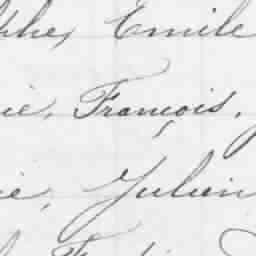 phe, Emile
ie, François,
ie, Julien